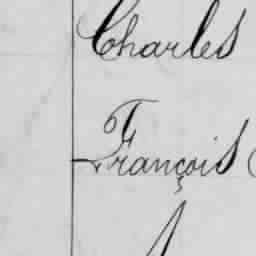 Charles
François